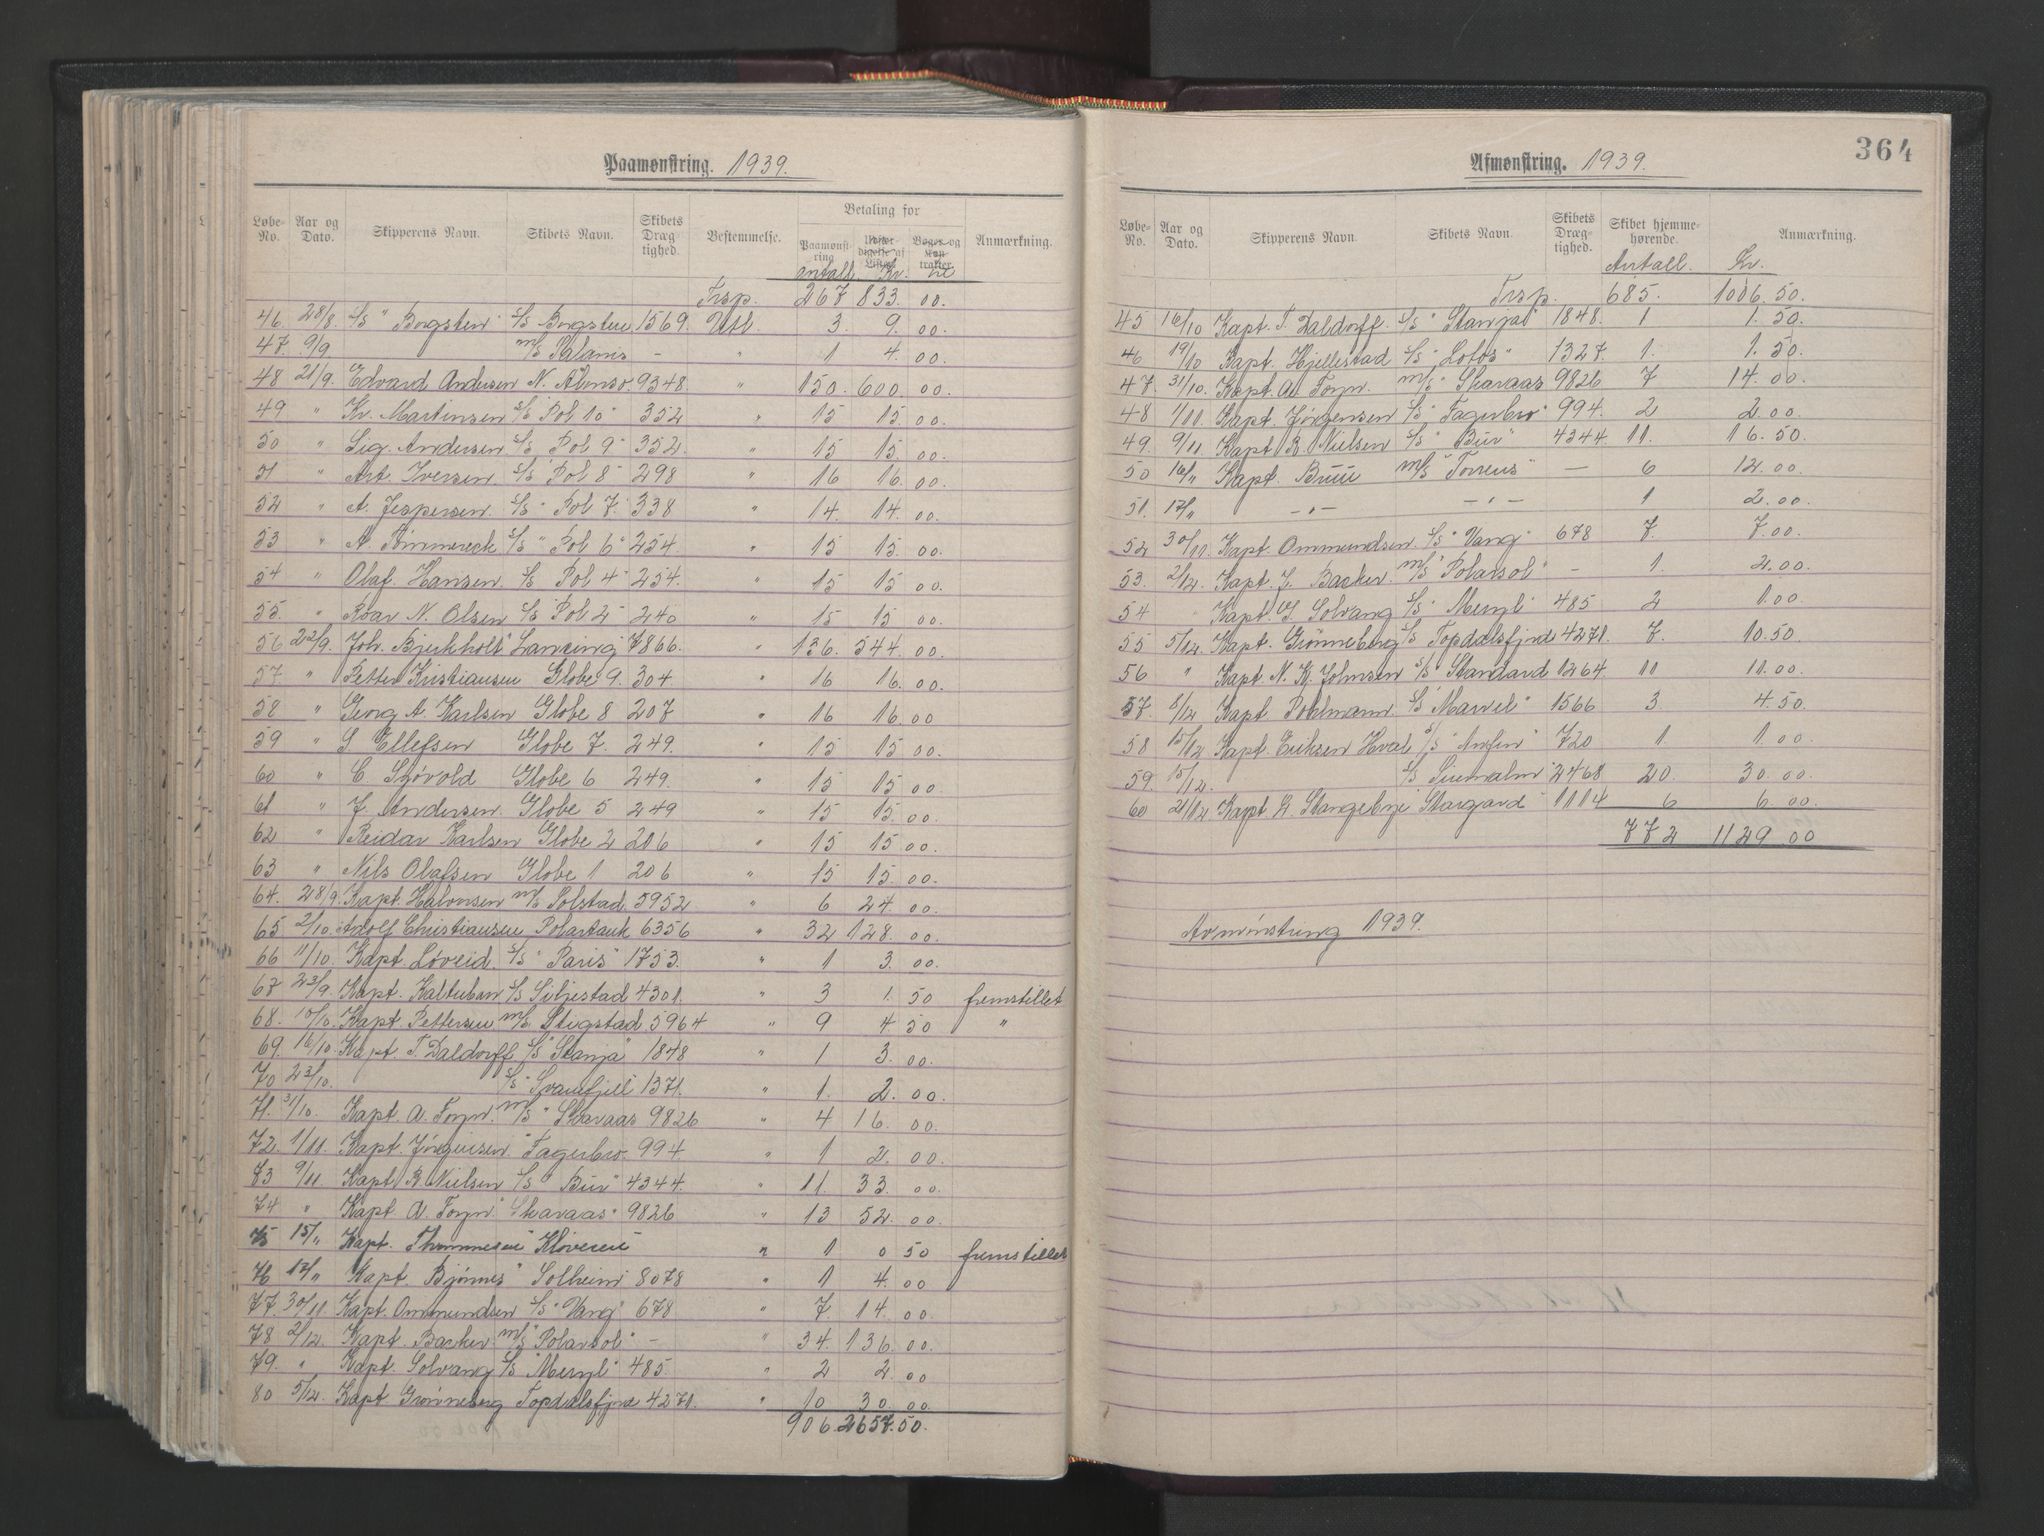 Paamønstring. 1939.
Løbe-No. Aar og Dato. Skipperens Navn. Skibets Navn. Skibets Drægtighed. Bestemmelse. Betaling for Paamønstring Udfærdigelse af Lister Bøger og Kontrakter Anmærkning.
antall Kr. øre
Trsp. 267 833. 00.
46. 28/8. S/S "Bogsten" S/S Bogsten 1569. Utl. 3. 9. 00.
47. 9/9 m/S Solamis - " 1 4. 00.
48 21/9. Edvard Andersen N. Alonso. 9348. " 150. 600. 00.
49 " Kr. Martinsen S/S "Pol 10" 352 " 15 15. 00.
50 " Sig. Andersen S/S "Pol 9" 352. " 15 15. 00.
51 " Art. Iversen S/S "Pol 8" 298 " 16 16. 00.
52 " A. Jespersen. S/S "Pol 7" 338 " 14. 14. 00.
53 " A. S/S "Pol 6" 254. " 15 15. 00.
54 " Olaf. Hansen. S/S "Pol 4" 254. " 15 15 00.
55. " Roar N. Olsen S/S "Pol 2" 240 " 15 15 00.
56 22/9. Joh. Bjerkholt "Lancing" 7866. " 136. 544. 00.
57 " Petter Kristiansen Globe 9. 304 " 16 16. 00.
58 " Georg A. Karlsen Globe 8 207 " 16 16. 00
59 " S Ellefsen Globe 7. 249. " 15 15 00.
60 " C. Sjøvold Globe 6 249. " 15 15 00.
61 " J. Andersen. Globe 5 249 " 15 15. 00.
62 " Reidar Karlsen Globe 2 206 " 15 15 00.
63 " Nils Olafsen Globe 1 206 " 15 15. 00.
64. 28/9. Kapt. Halvorsen m/S Solstad 5952 " 6 24. 00.
65 2/10. Adolf Christiansen Polartank 6356 " 32 128. 00.
66 11/10. Kapt. Løveid. S/S "Paris" 1753. " 1 3. 00.
67 23/9. Kapt. S/S Siljestad 4301. " 3 1. 50 fremstillet
68. 10/10. Kapt. Pettersen m/S Stigstad 5964 " 9 4 50 "
69. 16/10. Kapt. T. Daldorff S/S "Stanja" 1848 " 1 3. 00.
70 23/10. S/S Svanefjell 1371. " 1. 2. 00.
71. 31/10. Kapt. A. Torjn. m/S "Skaraas 9826 " 4 16. 00.
72. 1/11. Kapt. Jørgensen "Fagerbro. 994 " 1 2. 00.
73 9/11. Kapt. R. Nielsen S/S "Bur" 4344. " 11. 33. 00.
74 " Kapt. A. Torjn "Skaraas" 9826 " 13 52. 00.
75 15/" Kapt. Thommesen Kløveren " 1 0 50 fremstillet
76 17/" Kapt. Bjønnes "Solheim 8078 " 1 4. 00
77 30/11. Kapt. Ommundsen S/S "Vang" 678 " 7. 14. 00.
78 2/12. Kapt. Backer m/S "Polarsol" - " 34. 136. 00.
79. " Kapt. Solvang S/S "Meryl" 485. " 2 2. 00
80 5/12. Kapt. Grønneberg Topdalsfjord 4271. " 10 30. 00.
906. 2657. 50.
364
Afmønstring. 1939.
Løbe-No. Aar og Dato. Skipperens Navn. Skibets Navn. Skibets Drægtighed. Skibet hjemmehørende. Anmærkning.
Antall. Kr.
Trsp. 685. 1006. 50.
45 16/10 Kapt. T. Daldorff. S/S "Stanja" 1848. 1 1. 50.
46 19/10 Kapt. Hjellestad S/S "Lotos" 1327. 1. 1. 50.
47. 31/10. Kapt. A. Torjn. m/S "Skaraas 9826 7 14. 00.
48 1/11 Kapt. Jørgensen S/S "Fagerbro" 994. 2 2 00.
49. 9/11 Kapt. R. Nielsen S/S "Bur" 4344. 11. 16. 50.
50 16/" Kapt. Bruu m/S "Torrens" - 6 12. 00.
51. 17/" - " - - " - 1 2. 00.
52 30/11. Kapt. Ommundsen. S/S "Vang" 678 7. 7. 00.
53. 2/12 Kapt. J. Backer. m/S "Polarsol" - 1. 2. 00.
54 " Kapt. G Solvang S/S "Meryl" 485 2 1. 00
55 5/12 Kapt. Grønneberg S/S Topdalsfjord 4271. 7. 10. 50.
56 " Kapt. N. K. Johnsen S/S Standard 1264. 11 11. 00.
57. 8/12 Kapt. Pohlmann S/S "Marvel" 1566 3 4. 50.
58 15/12 Kapt. Eriksen Hval S/S "Anfin" 720 1 1. 00.
59. 15/12. S/S 2468 20. 30. 00.
60 21/12 Kapt. H. Stangebye "Stargard" 1114 6 6. 00.
772 1129 00
Avmønstring 1939.